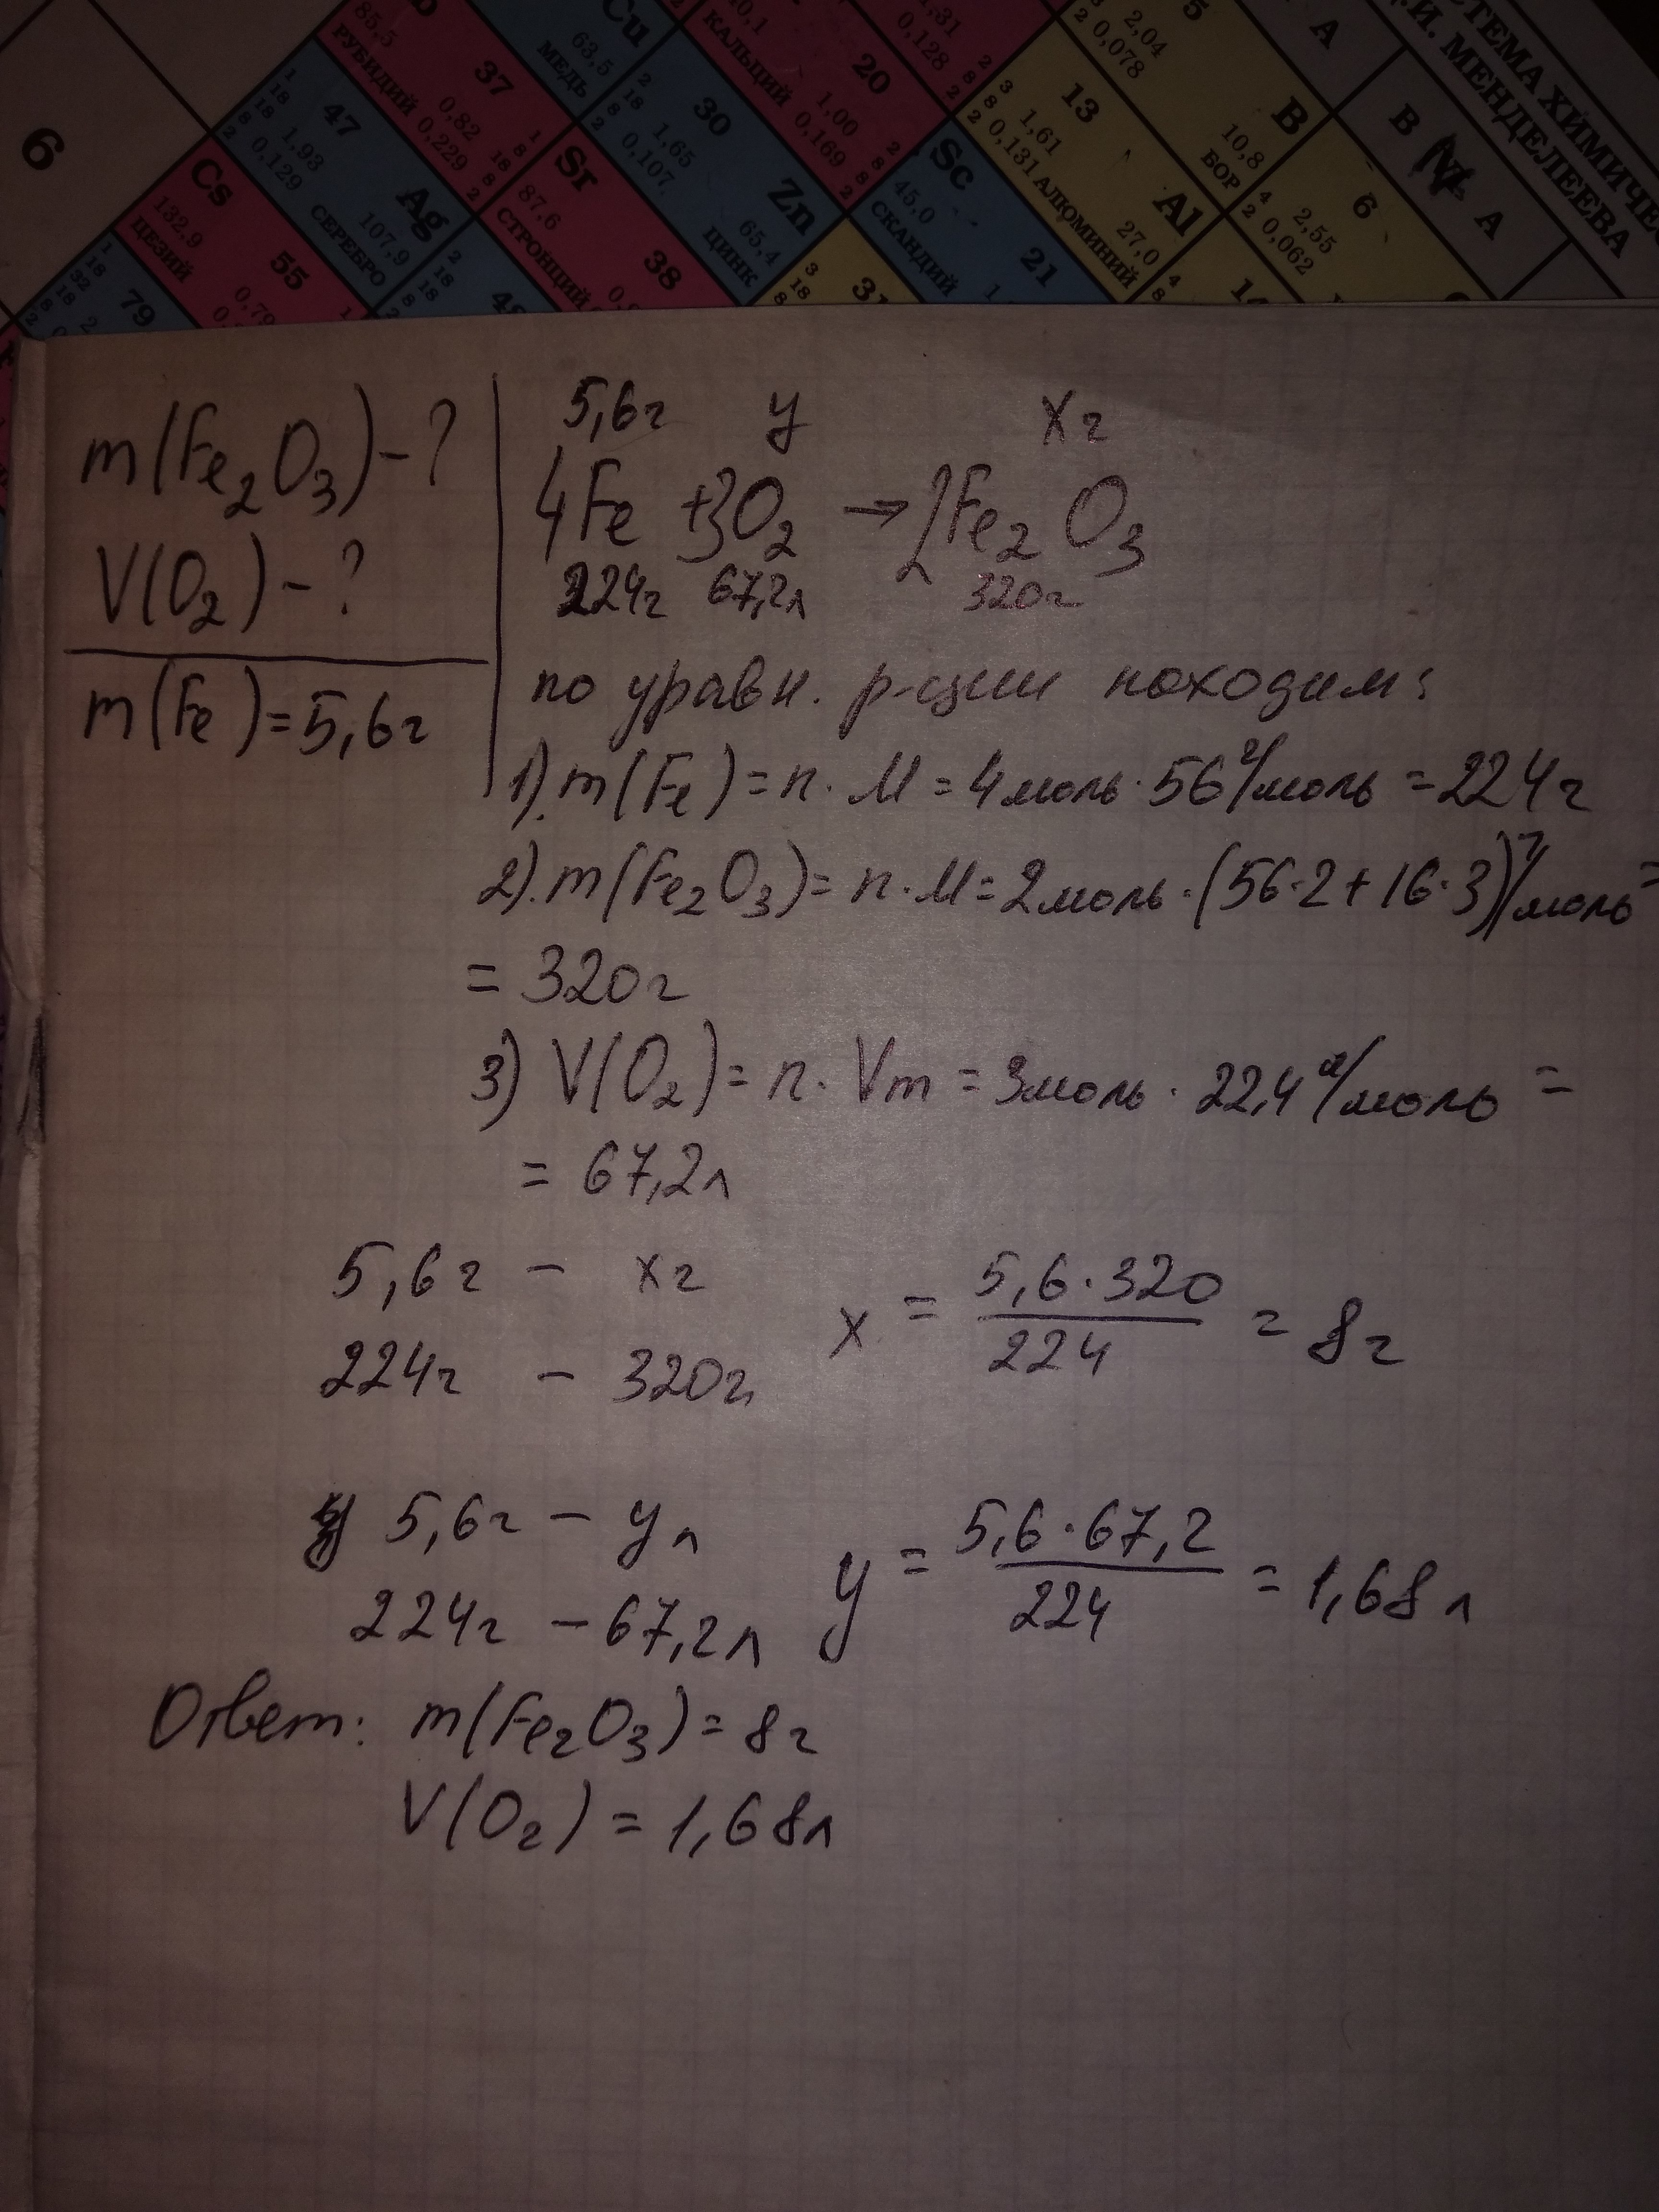 СТЕМА ХИМИЧЕС
Д.И. МЕНДЕЛЕЕВА
6
85,5
РУБИДИЙ
37
0,82
0,229
Cu
63,5
МЕДЬ
40,1
КАЛЬЦИЙ
20
1,00
0,169
1,31
0,128
2,04
0,078
5
B
10,8
БОР
A
B
A
47
1,93
0,129
Ag
107,9
СЕРЕБРО
Sr
87,6
СТРОНЦИЙ
38
30
1,65
0,107
Zn
65,4
ЦИНК
Sc
45,0
СКАНДИЙ
21
13
1,61
0,131
Al
27,0
АЛЮМИНИЙ
6
2,55
0,062
Cs
132,9
ЦЕЗИЙ
55
0,79
79
31
m(Fe₂O₃) - ?
V(O₂) - ?
m(Fe) = 5,6г
5,6г y xг
4Fe + 3O₂ → 2Fe₂O₃
224г 67,2л 320г
по уравн. р-ции находим:
1). m(Fe) = n · M = 4моль · 56 г/моль = 224г
2). m(Fe₂O₃) = n · M = 2моль · (56·2+16·3) г/моль =
= 320г
3) V(O₂) = n · Vm = 3моль · 22,4 л/моль =
= 67,2л
5,6г - xг x = 5,6·320/224 = 8г
224г - 320г
5,6г - yл y = 5,6·67,2/224 = 1,68л
224г - 67,2л
Ответ: m(Fe₂O₃) = 8г
V(O₂) = 1,68л